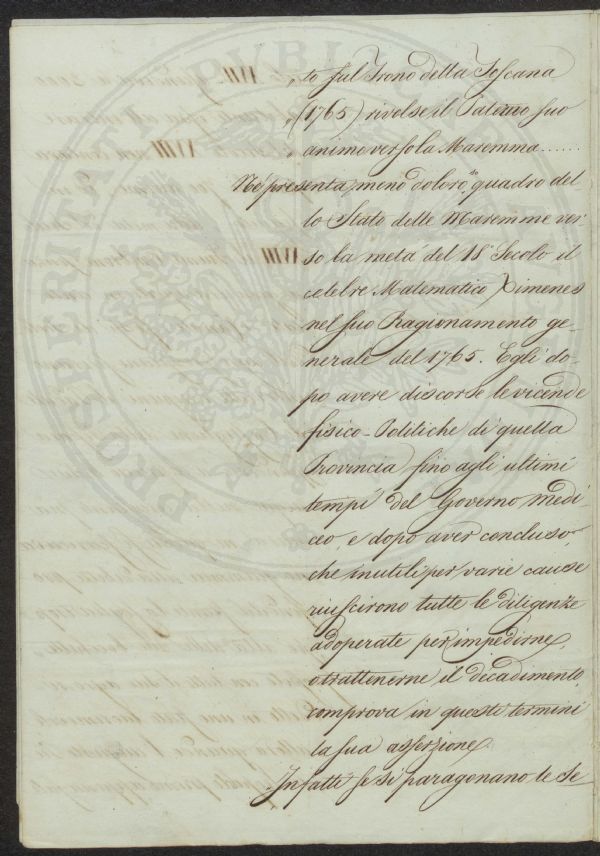 „ to sul Trono della Toscana
„ (1765) rivolse il Paterno suo
„ animo verso la Maremma......
Nè presenta meno doloro.so quadro del-
lo Stato delle Maremme ver-
so la metà del 18° Secolo il
celebre Matematico Ximenes
nel suo Ragionamento ge-
nerale del 1765. Egli do-
po avere discorse le vicende
fisico-Politiche di quella
Provincia fino agli ultimi
tempi del Governo Medi-
ceo, e dopo aver concluso,
che inutili per varie cause
riuscirono tutte le diligenze
adoperate per impedirne,
o trattenerne il decadimento,
comprova in questi termini
la sua asserzione
„ Infatti se si paragonano le se-
PROSPERITATI PUBLICAE